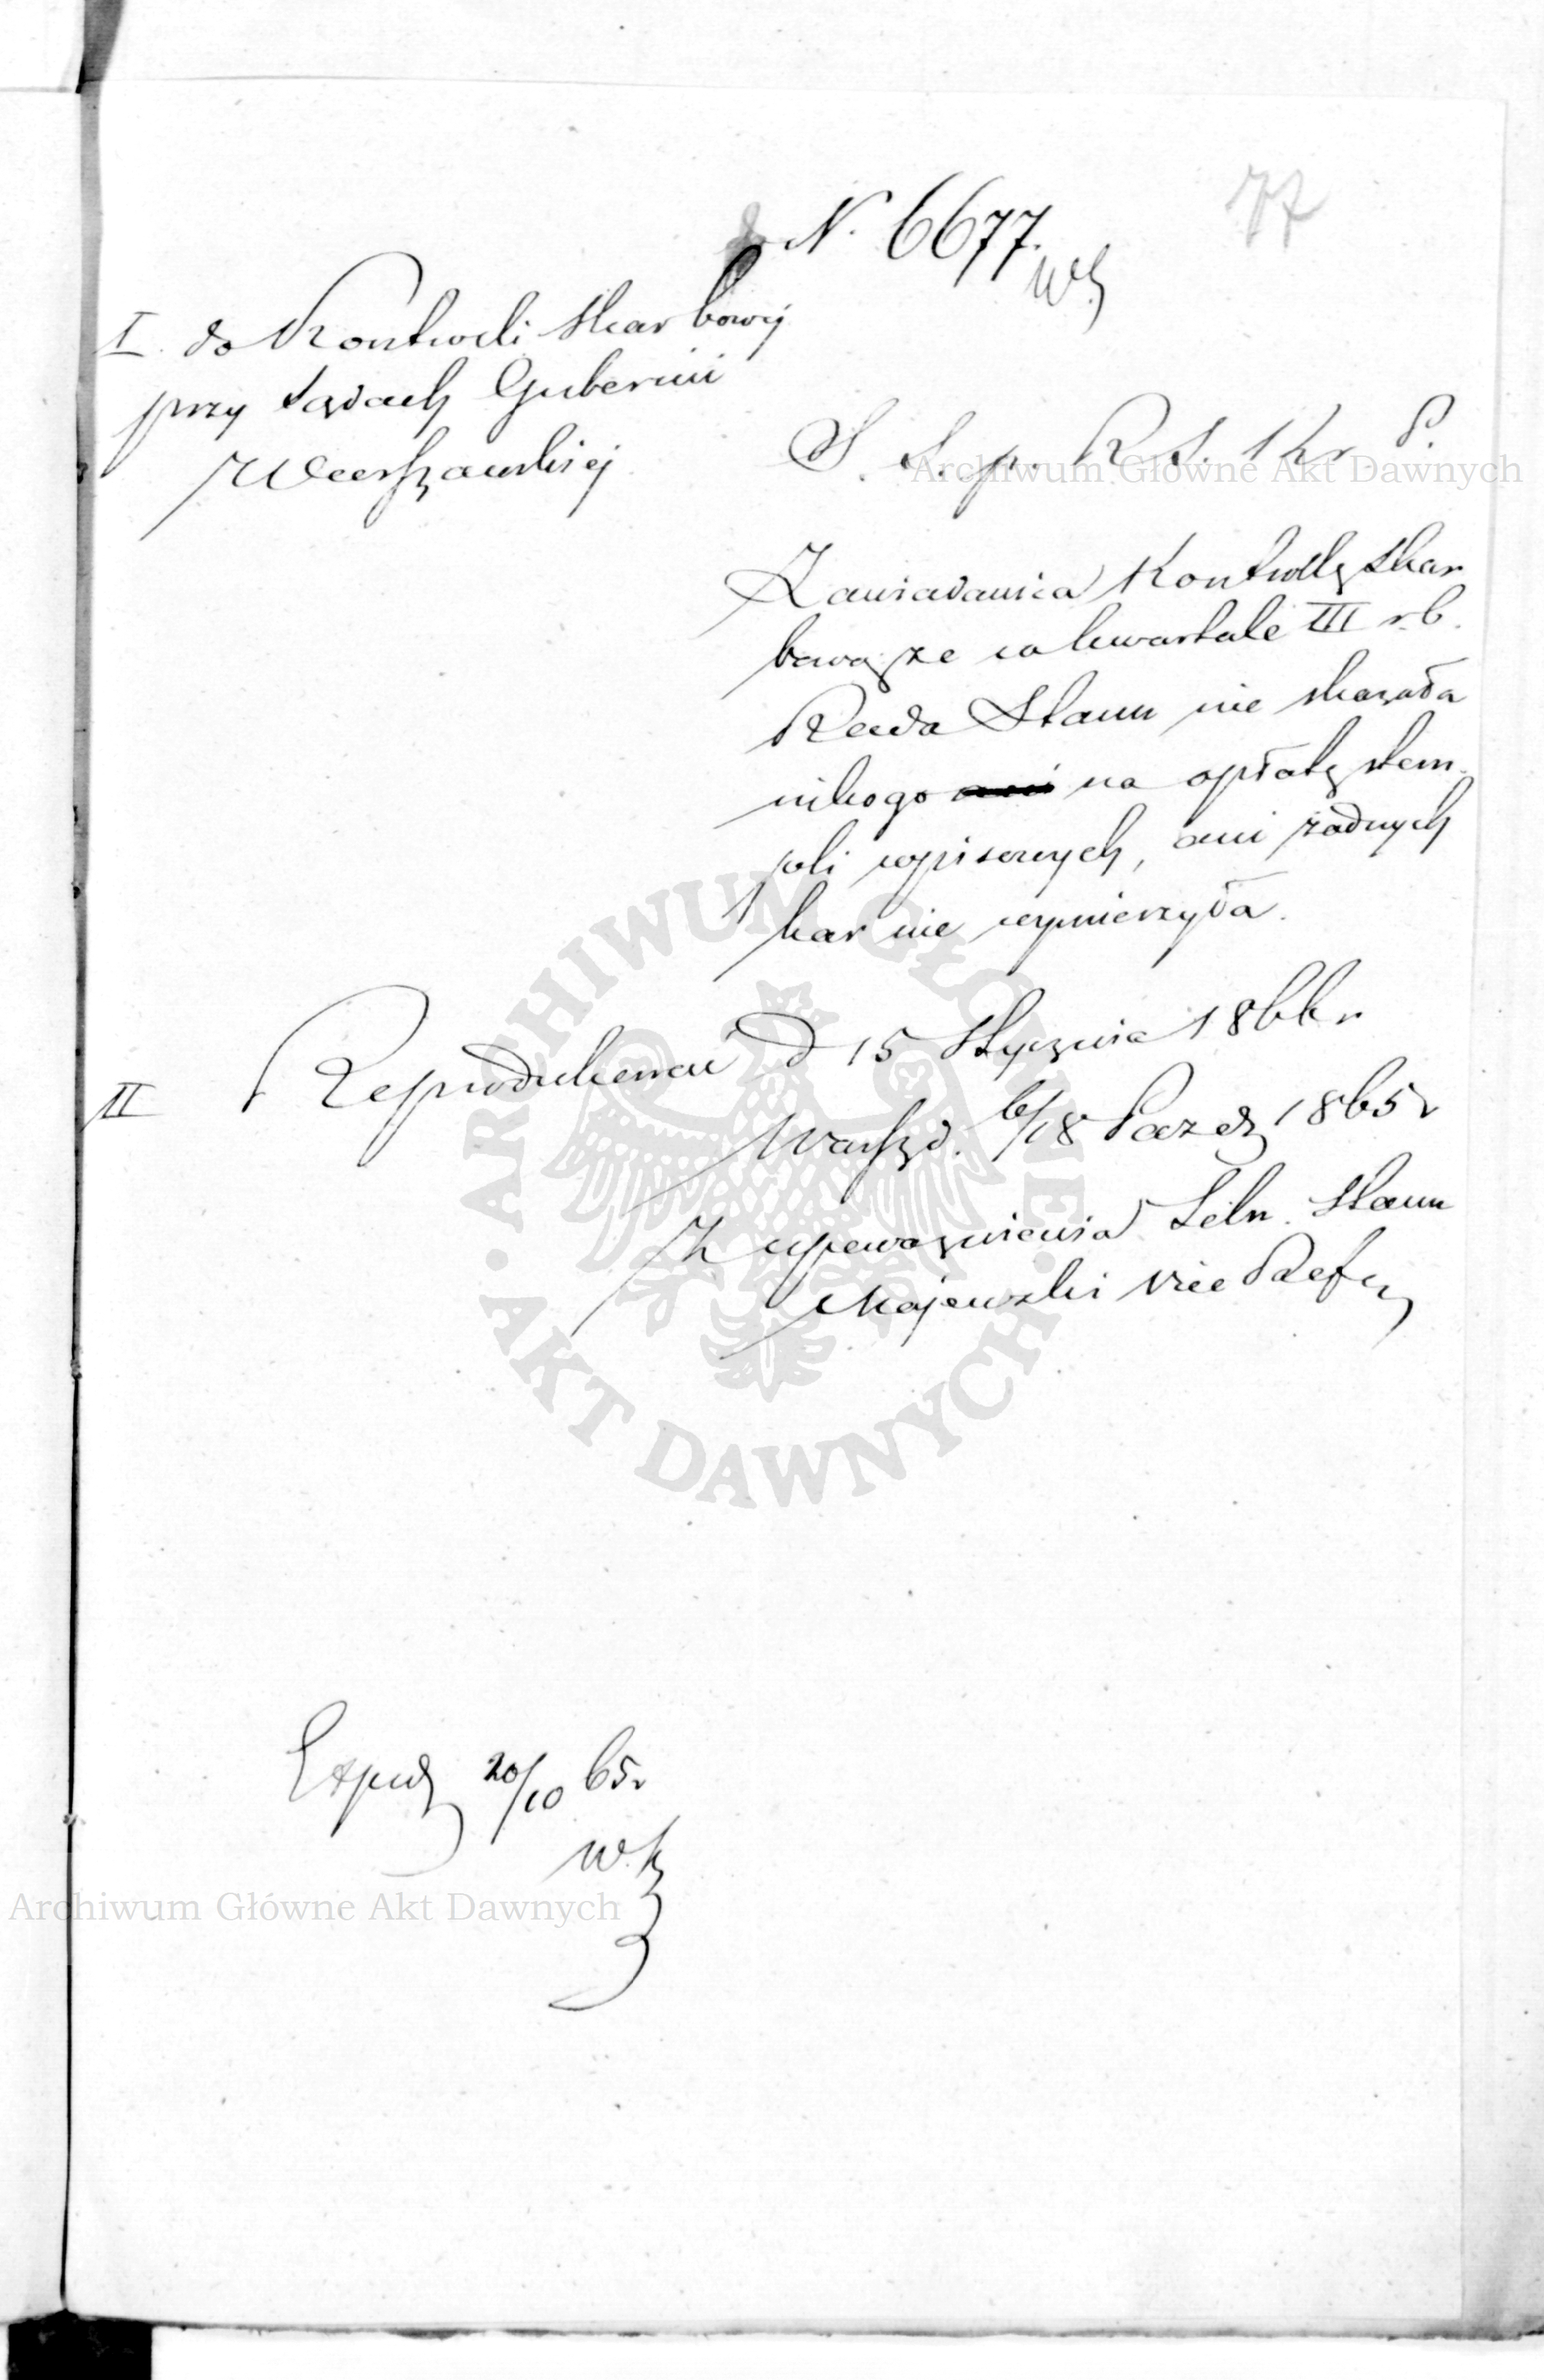 do N. 6677.
77
I. do Kontroli skarbowej
przy Sądach Gubernii
Warszawskiej
S. S. p. R. S. Kr. P.
Zawiadamia Kontrollę skar
bową że w kwartale III r.b.
Rada Stanu nie skazała
nikogo na opłatę stem
pli wpisowych, ani żadnych
kar nie wymierzyła.
II Reprodukować d 15 Stycznia 1866 r
Warsz d. 6/18 Paźdz 1865 r
Z upoważnienia Sekr. Stanu
Majewski Vice Refer
Exped 20/10 65 r
WK
Archiwum Główne Akt Dawnych
ARCHIWUM GŁÓWNE · AKT DAWNYCH ·
Archiwum Główne Akt Dawnych